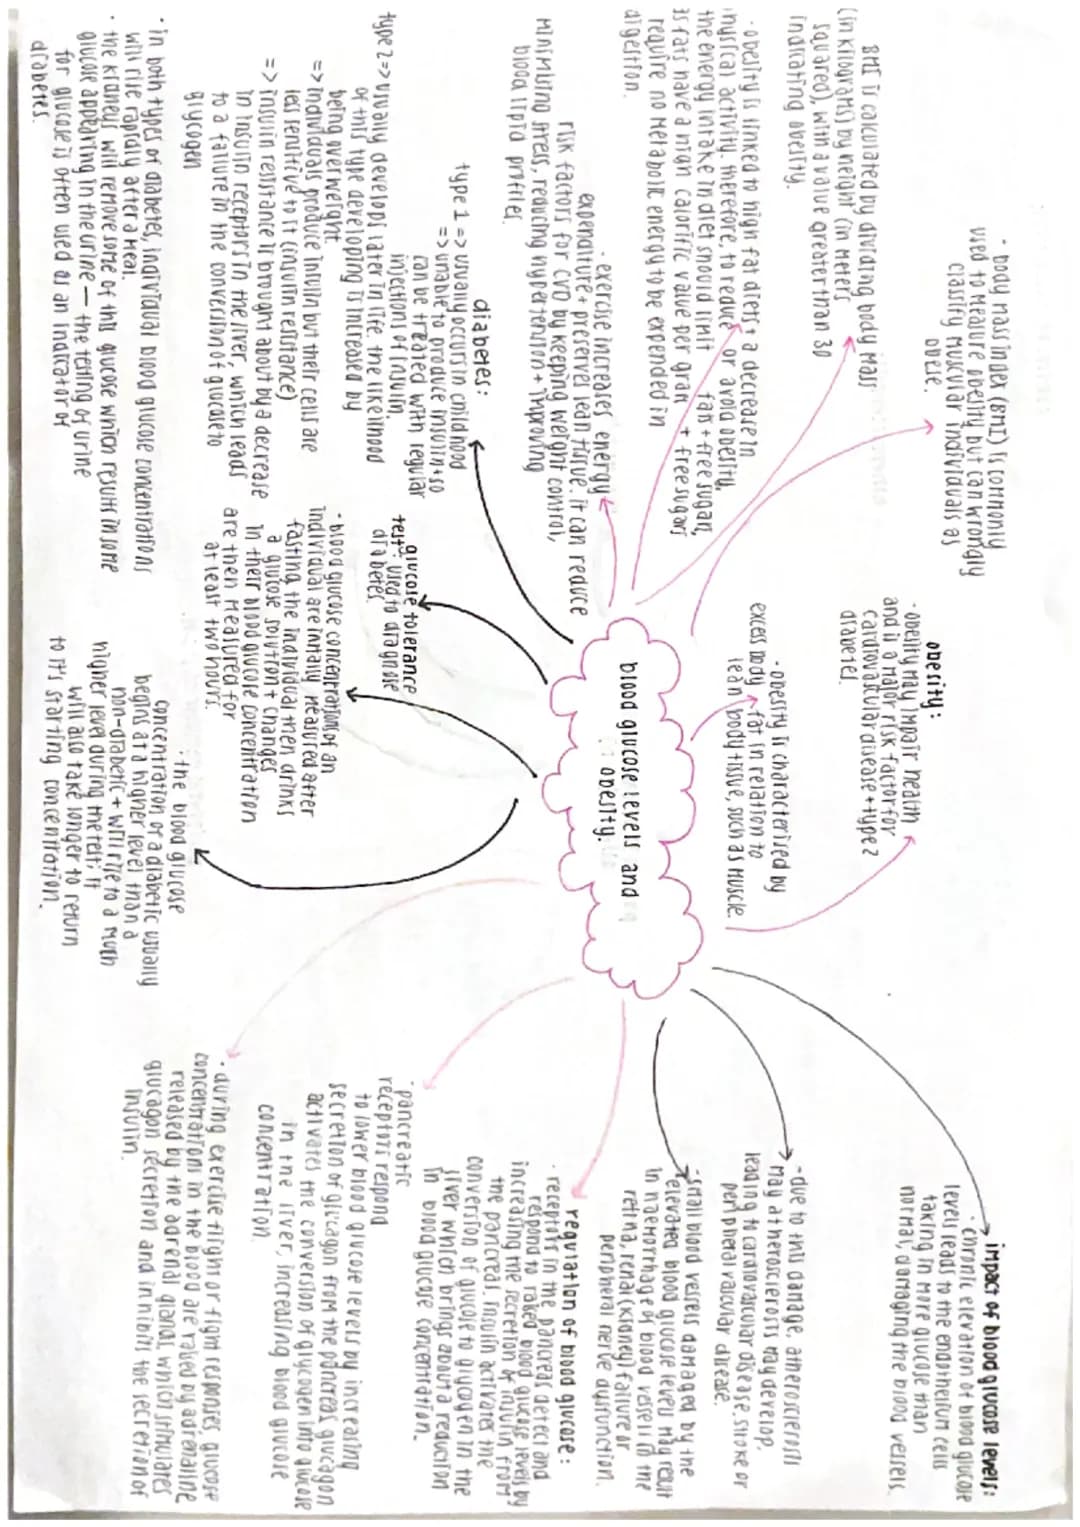 blood glucose levels and
obesity.
obesity:
· obesity may impair health
and is a major risk factor for
cardiovascular disease + type 2
diabetes.
· obesity is characterised by
excess body fat in relation to
lean body tissue, such as muscle.
· body mass index (BMI) is commonly
used to measure obesity but can wrongly
classify muscular individuals as
obese.
BMI is calculated by dividing body mass
(in kilograms) by height (in meters
squared), with a value greater than 30
indicating obesity.
· obesity is linked to high fat diets + a decrease in
physical activity. therefore, to reduce or avoid obesity,
the energy intake in diet should limit fats + free sugar,
as fats have a high calorific value per gram + free sugars
require no metabolic energy to be expended in
digestion.
· exercise increases energy
expenditure + preserves lean tissue. it can reduce
risk factors for CVD by keeping weight control,
minimising stress, reducing hypertension + improving
blood lipid profiles.
diabetes:
type 1 => usually occurs in childhood
=> unable to produce insulin + so
can be treated with regular
injections of insulin.
type 2 => usually develops later in life. the likelihood
of this type developing is increased by
being overweight
=> individuals produce insulin but their cells are
less sensitive to it (insulin resistance)
=> insulin resistance is brought about by a decrease
in insulin receptors in the liver, which leads
to a failure in the conversion of glucose to
glycogen
· in both types of diabetes, individual blood glucose concentrations
will rise rapidly after a meal.
· the kidneys will remove some of this glucose which results in some
glucose appearing in the urine — the testing of urine
for glucose is often used as an indicator of
diabetes.
glucose tolerance
test: used to diagnose
diabetes.
· blood glucose concentrations of an
individual are initially measured after
fasting. the individual then drinks
a glucose solution + changes
in their blood glucose concentration
are then measured for
at least two hours.
· the blood glucose
concentration of a diabetic usually
begins at a higher level than a
non-diabetic + will rise to a much
higher level during the test; it
will also take longer to return
to it's starting concentration.
impact of blood glucose levels:
· chronic elevation of blood glucose
levels leads to the endothelium cells
taking in more glucose than
normal, damaging the blood vessels.
- due to this damage, atherosclerosis
may atherosclerosis may develop,
leading to cardiovascular disease, stroke or
peripheral vascular disease.
- small blood vessels damaged by the
elevated blood glucose levels may result
in haemorrhage of blood vessels in the
retina, renal (kidney) failure or
peripheral nerve dysfunction.
regulation of blood glucose:
· receptors in the pancreas detect and
respond to raised blood glucose levels by
increasing the secretion of insulin from
the pancreas. insulin activates the
conversion of glucose to glycogen in the
liver which brings about a reduction
in blood glucose concentration.
· pancreatic
receptors respond
to lower blood glucose levels by increasing
secretion of glucagon from the pancreas. glucagon
activates the conversion of glycogen into glucose
in the liver, increasing blood glucose
concentration.
· during exercise + fight or flight responses, glucose
concentrations in the blood are raised by adrenaline
released by the adrenal glands, which stimulates
glucagon secretion and inhibits the secretion of
insulin.